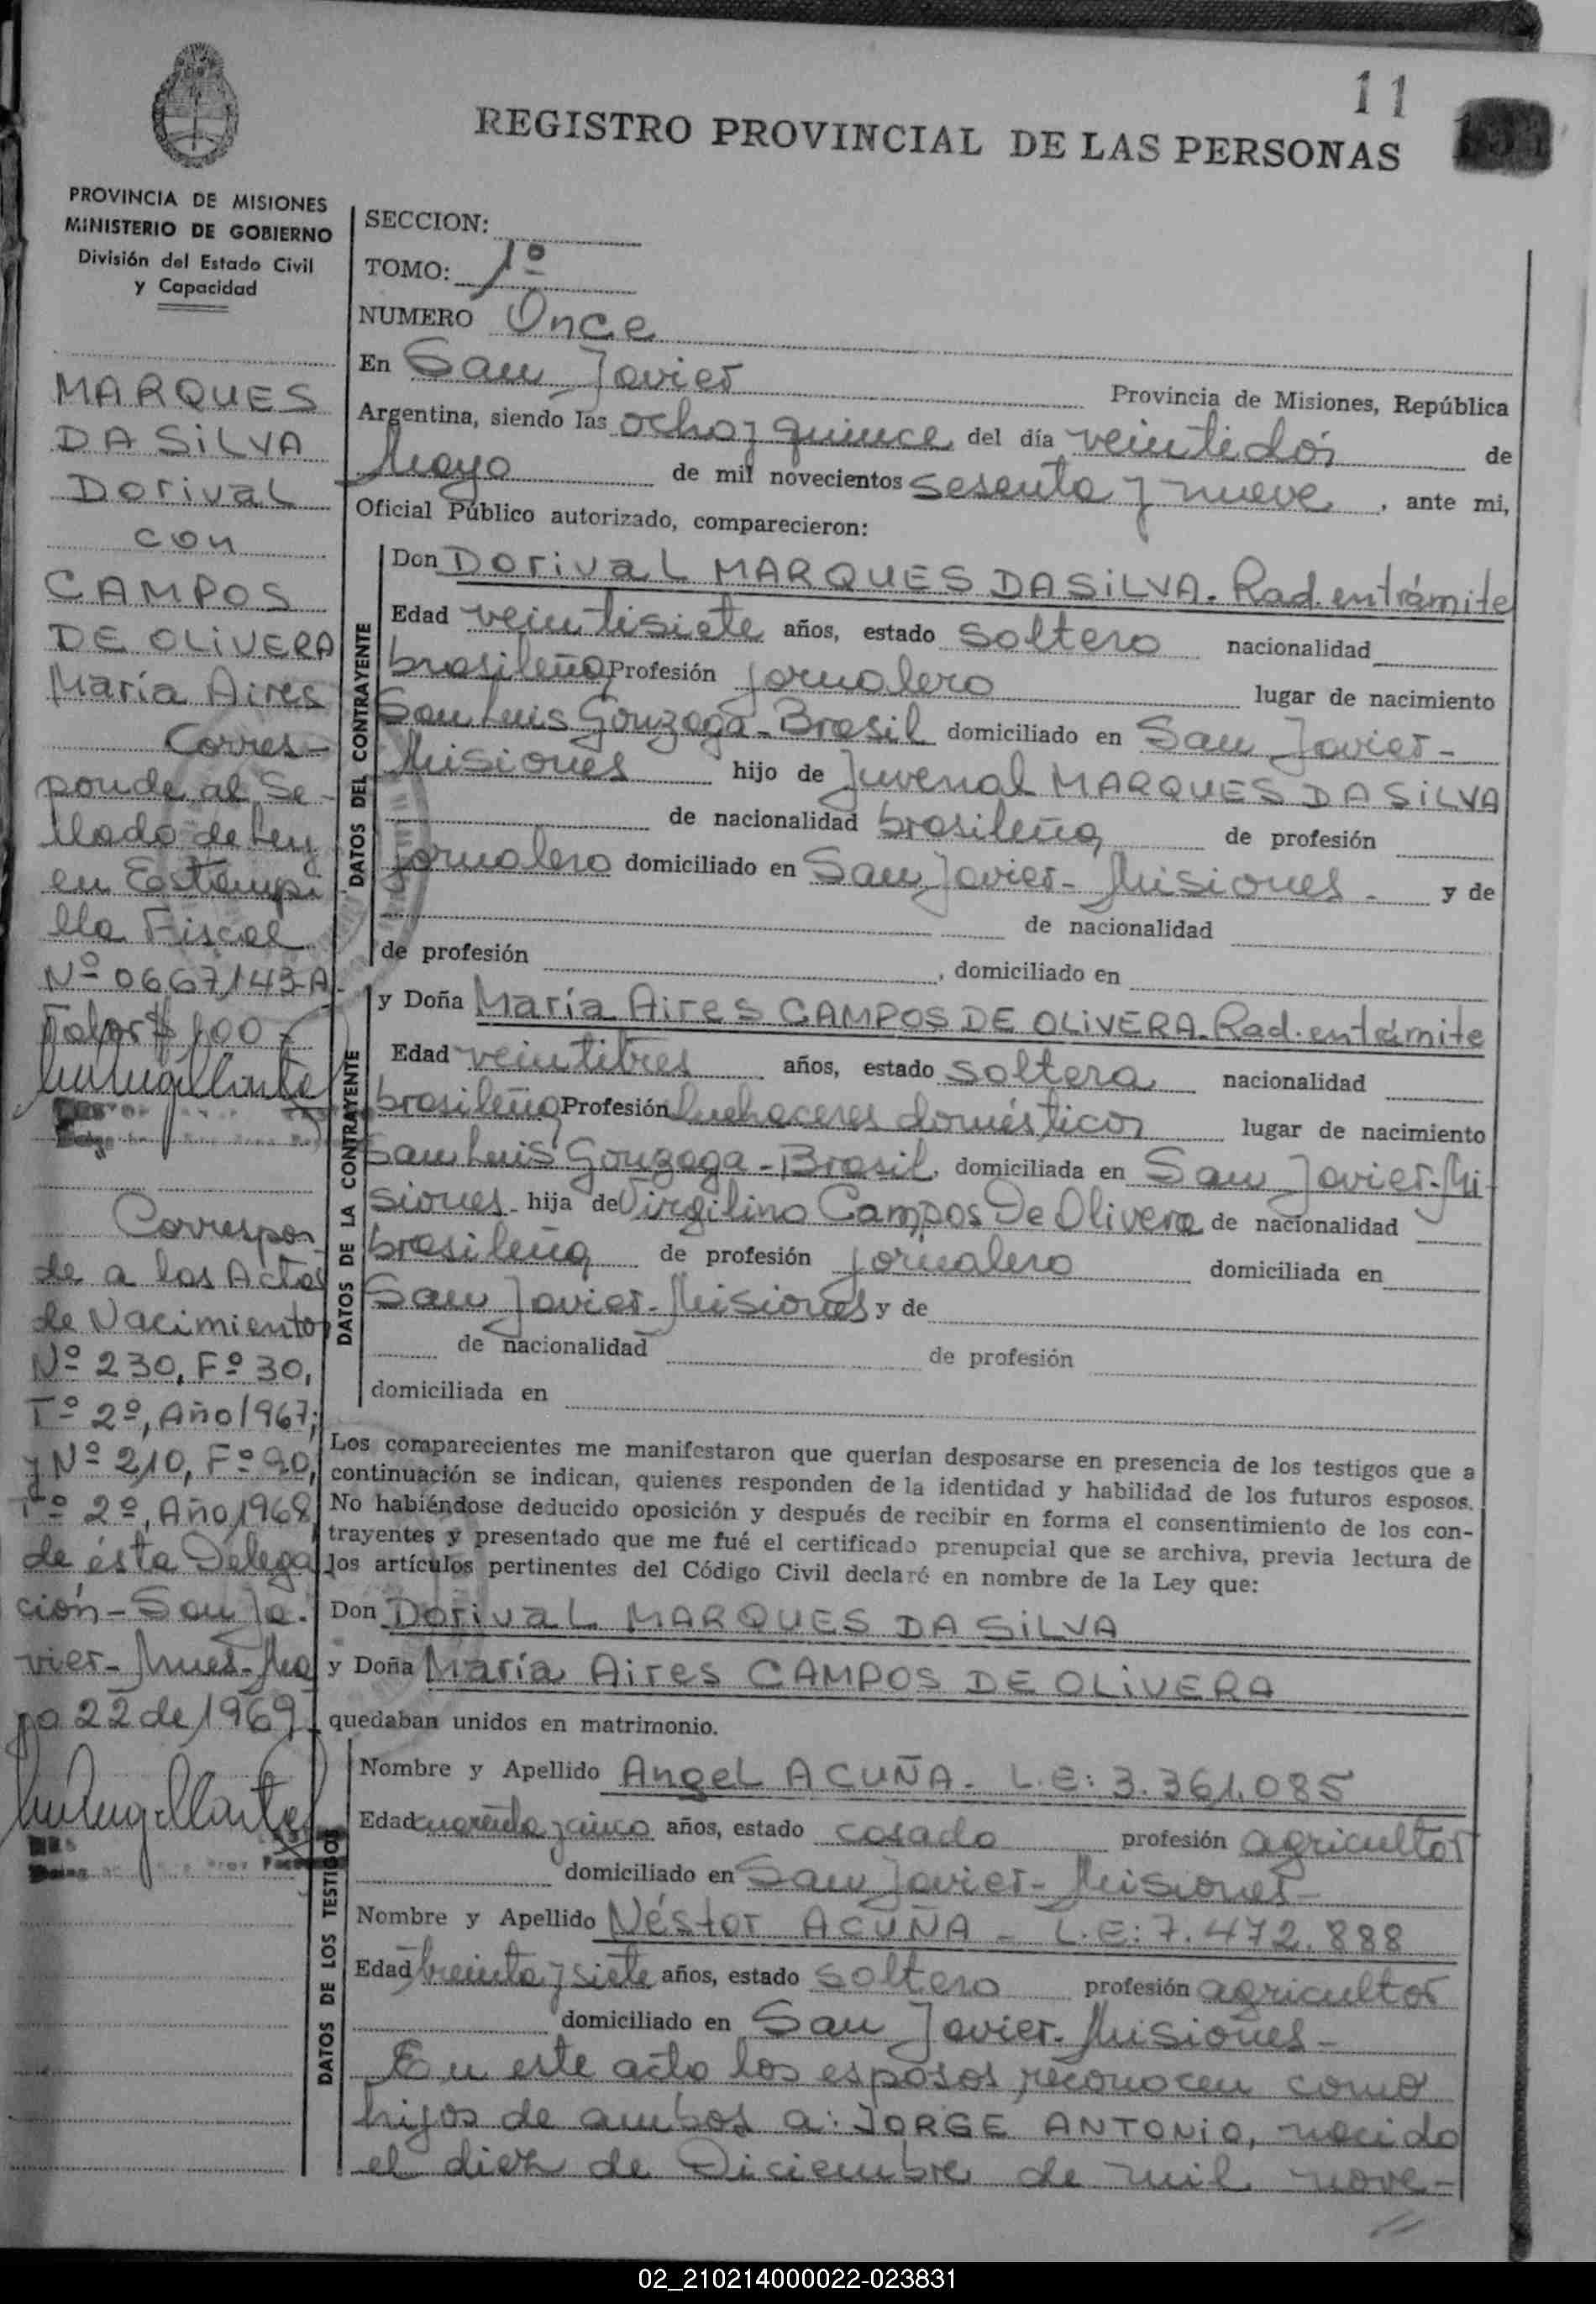 11
REGISTRO PROVINCIAL DE LAS PERSONAS
PROVINCIA DE MISIONES
MINISTERIO DE GOBIERNO
División del Estado Civil
y Capacidad
MARQUES
DA SiLVA
Dorival
con
CAMPOS
DE OLiVERA
María Aires
Corres-
ponde al Se-
llado de Ley
en Estampi
lla Fiscal
Nº 0667143-A-
Valor $ 100.-
Correspon
de a las Actas
de Nacimiento
Nº 230, Fº 30,
Tº 2º, Año 1967;
y Nº 210, Fº 90,
Tº 2º, Año 1968
de ésta Delega
ción - San Ja-
vier - Mnes - Ma
yo 22 de 1969
SECCION:
TOMO: 1º
NUMERO Once
En San Javier Provincia de Misiones, República
Argentina, siendo las ocho y quince del día veintidós de
Mayo de mil novecientos sesenta y nueve, ante mi,
Oficial Público autorizado, comparecieron:
DATOS DEL CONTRAYENTE
Don Dorival MARQUES DA SiLVA. Rad. en trámite
Edad veintisiete años, estado soltero nacionalidad
brasileña Profesión jornalero lugar de nacimiento
San Luis Gonzaga - Brasil domiciliado en San Javier -
Misiones hijo de Juvenal MARQUES DA SiLVA
de nacionalidad brasileña de profesión
jornalero domiciliado en San Javier - Misiones - y de
de nacionalidad
de profesión , domiciliado en
DATOS DE LA CONTRAYENTE
y Doña María Aires CAMPOS DE OLiVERA. Rad. en trámite
Edad veintitres años, estado soltera nacionalidad
brasileña Profesión quehaceres domésticos lugar de nacimiento
San Luis Gonzaga - Brasil, domiciliada en San Javier - Mi
siones - hija de Virgilino Campos De Olivera de nacionalidad
brasileña de profesión jornalero domiciliada en
San Javier - Misiones y de
de nacionalidad de profesión
domiciliada en
Los comparecientes me manifestaron que querían desposarse en presencia de los testigos que a
continuación se indican, quienes responden de la identidad y habilidad de los futuros esposos.
No habiéndose deducido oposición y después de recibir en forma el consentimiento de los con-
trayentes y presentado que me fué el certificado prenupcial que se archiva, previa lectura de
los artículos pertinentes del Código Civil declaré en nombre de la Ley que:
Don Dorival MARQUES DA SiLVA
y Doña María Aires CAMPOS DE OLiVERA
quedaban unidos en matrimonio.
DATOS DE LOS TESTIGOS
Nombre y Apellido Angel ACUÑA - L.E: 3.361.085
Edad cuarenta y cinco años, estado casado profesión agricultor
domiciliado en San Javier - Misiones -
Nombre y Apellido Néstor ACUÑA - L.E: 7.472.888
Edad treinta y siete años, estado soltero profesión agricultor
domiciliado en San Javier - Misiones -
En este acto los esposos reconocen como
hijos de ambos a: JORGE ANTONIO, nacido
el diez de Diciembre de mil nove-
02_210214000022-023831